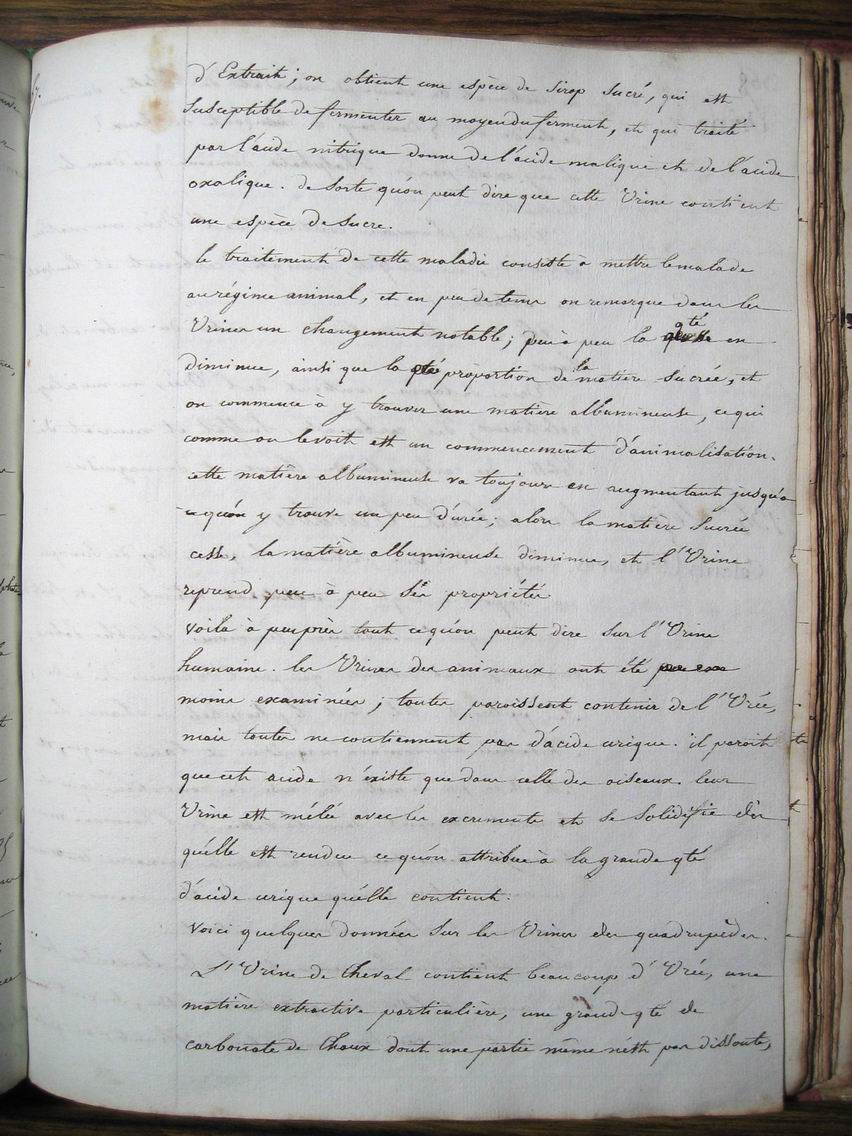 d'Extrait; on obtient une espèce de Sirop Sucré, qui est
susceptible de fermenter au moyen du ferment, et qui traité
par l'acide nitrique donne de l'acide malique et de l'acide
oxalique. de sorte qu'on peut dire que cette Urine contient
une espèce de sucre.
le traitement de cette maladie consiste à mettre le malade
au régime animal, et en peu de tems on remarque dans les
Urines un changement notable; peu à peu la qté en
diminue, ainsi que la proportion de la matière sucrée, et
on commence à y trouver une matière albumineuse, ce qui
comme on le voit est un commencement d'animalisation.
cette matière albumineuse va toujours en augmentant jusqu'a
ce qu'on y trouve un peu d'urée; alors la matière Sucrée
cesse, la matière albumineuse diminue, et l'Urine
reprend peu à peu ses propriétés
Voila à peu près tout ce qu'on peut dire sur l'Urine
humaine. les Urines des animaux ont été
moins examinées; toutes paroissent contenir de l'Urée,
mais toutes ne contiennent pas d'acide urique. il paroit
que cet acide n'existe que dans celle des oiseaux. leur
Urine est mêlée avec les excrements et se Solidifie dès
qu'elle est rendue ce qu'on attribue à la grande qté
d'acide urique qu'elle contient.
Voici quelques données sur les Urines des quadrupèdes.
L'Urine de Cheval contient beaucoup d'Urée, une
matière extractive particulière, une grande qté de
carbonate de Chaux dont une partie même n'est pas dissoute,